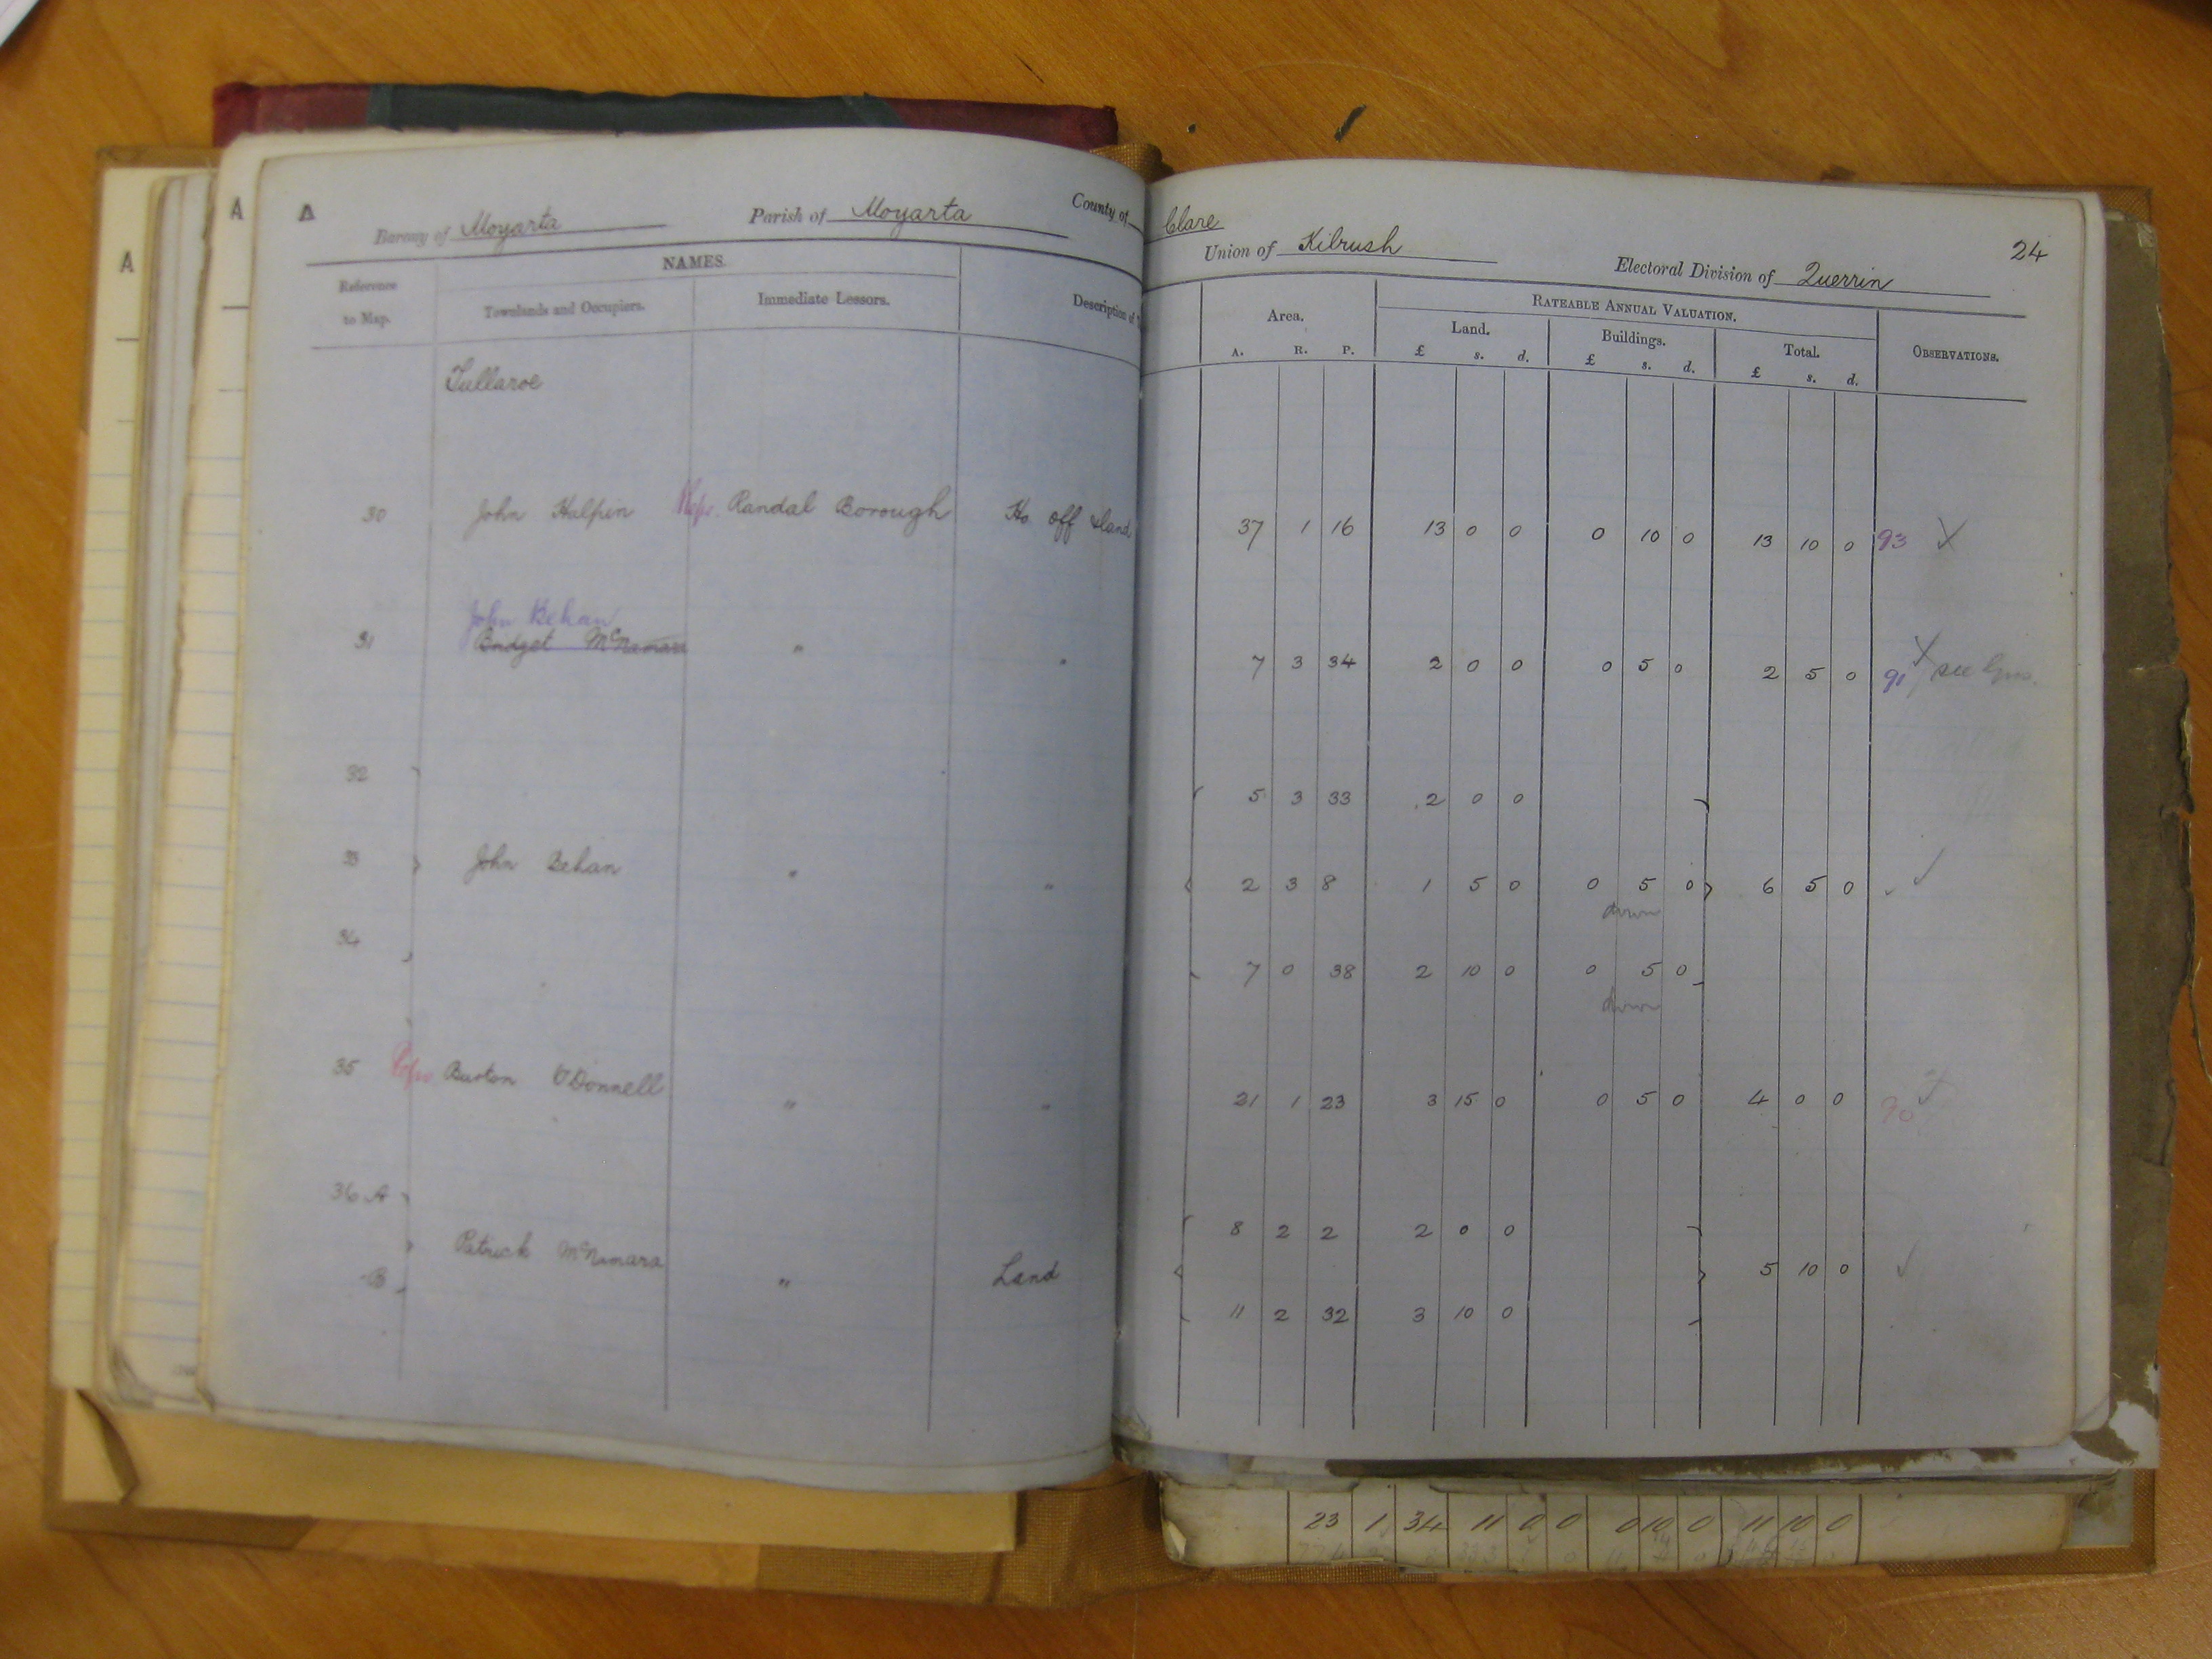 A
A
A
Barony of Moyarta Parish of Moyarta County of Clare
Union of Kilrush Electoral Division of Querrin 24
Reference to Map.
NAMES.
Townlands and Occupiers.
Immediate Lessors.
Description of
Area.
A. R. P.
RATEABLE ANNUAL VALUATION.
Land.
£ s. d.
Buildings.
£ s. d.
Total.
£ s. d.
OBSERVATIONS.
Tullaroe
30 John Halpin Reps. Randal Borough Ho off & land 37 1 16 13 0 0 0 10 0 13 10 0 93
John Behan
31 Bridget McNamara " " 7 3 34 2 0 0 0 5 0 2 5 0 91 see
32 5 3 33 2 0 0
33 John Behan " " 2 3 8 1 5 0 0 5 0 6 5 0
down
34 7 0 38 2 10 0 0 5 0
down
35 Reps Burton O'Donnell " " 21 1 23 3 15 0 0 5 0 4 0 0 90
36 A 8 2 2 2 0 0
Patrick McNamara " Land 5 10 0
-B 11 2 32 3 10 0
23 1 34 11 0 0 0 10 0 11 10 0